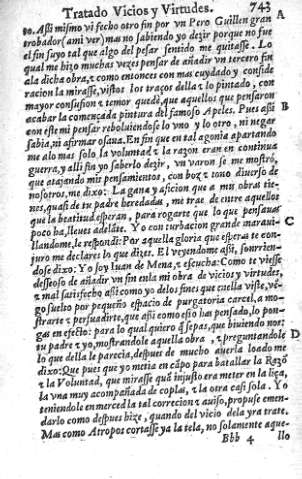 Tratado Vicios y Virtudes. 743
do. Assi mismo vi fecho otro fin por vn Pero Guillen gran
trobador (a mi ver) mas no sabiendo yo dezir porque no fue
el fin suyo tal que algo del pesar sentido me quitasse. Lo
qual me hizo muchas vezes pensar de añadir vn tercero fin
a la dicha obra, z como entonces con mas cuydado y conside
racion la mirasse, vistos los traços della z lo pintado, con
mayor confusion z temor quedè, que aquellos que pensaron
acabar la començada pintura del famoso Apeles. Pues assi B
con este mi pensar reboluiendose lo vno y lo otro, ni negar
sabia, ni afirmar osaua. En fin que en tal agonia apartando
me a lo mas solo, la voluntad z la razon eran en continua
guerra, y alli sin yo saberlo dezir, vn varon se me mostrò,
que atajando mis pensamientos, con boz z tono diuerso de
nosotros, me dixo: La gana y aficion que a mis obras tie-
nes, quasi de tu padre heredadas, me trae de entre aquellos
que la beatitud esperan, para rogarte que lo que pensauas C
poco ha, lleues adelãte. Yo con turbacion grande maraui-
llandome, le respondi: Por aquella gloria que esperas te con-
juro me declares lo que dizes. El veyendome assi, sonrrien-
dose dixo: Yo soy Iuan de Mena, z escucha: Como te viesse
desseoso de añadir vn fin en la mi obra de vicios y virtudes,
z mal satisfecho assi como yo de los fines que en ella viste, vẽ-
go suelto por pequeño espacio de purgatoria carcel, a mo-
strarte z persuadirte, que assi como esto has pensado, lo pon-
gas en efecto: para lo qual quiero q̃ sepas, que biuiendo nos: D
tu padre z yo, mostrandole aquella obra, z preguntandole
lo que della le parecia, despues de mucho auerla loado me
dixo: Que pues que yo metia en cãpo para batallar la Razõ
z la Voluntad, que mirasse quã injusto era meter en la liça,
la vna muy acompañada de coplas, z la otra casi sola. Yo
teniendole en merced la tal correcion z auiso, propuse emen-
darlo como despues hize, quando del vicio dela yra trate.
Mas como Atropos cortasse ya la tela, no solamente aque-
Bbb 4 llo